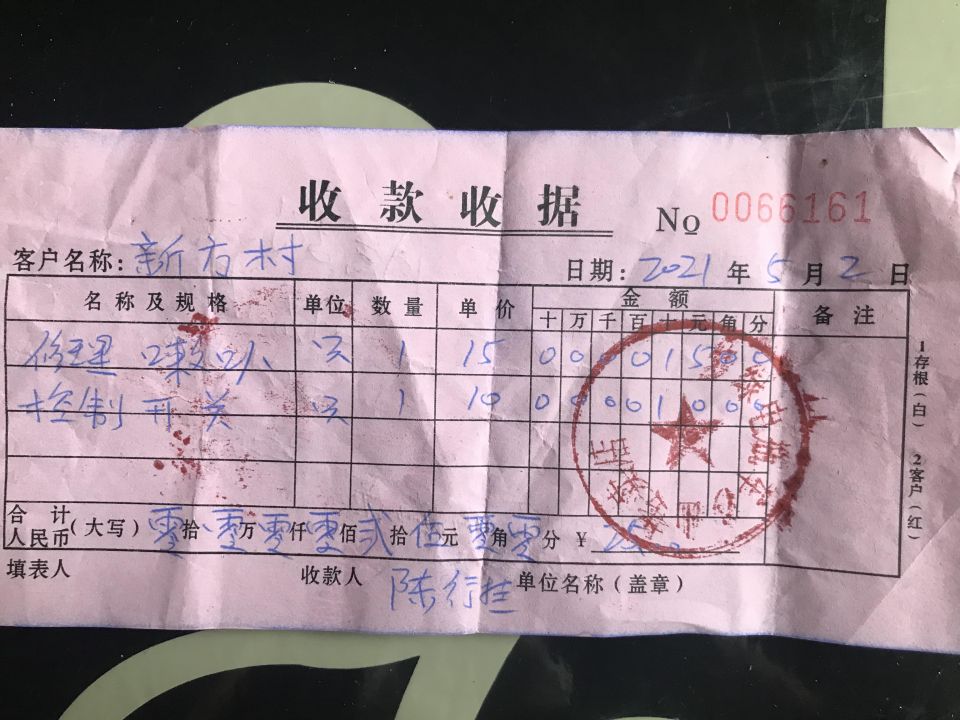 收款收据 No 0066161
客户名称：新方村 日期：2021年5月2日
名称及规格 单位 数量 单价 金额 备注
十 万 千 百 十 元 角 分
修理 只 1 15 0 0 0 0 1 5 0 0
控制开关 只 1 10 0 0 0 0 1 0 0 0
合计人民币（大写）零拾零万零仟零佰贰拾伍元零角零分 ¥ 25.
填表人 收款人 陈行 单位名称（盖章）
1存根（白） 2客户（红）